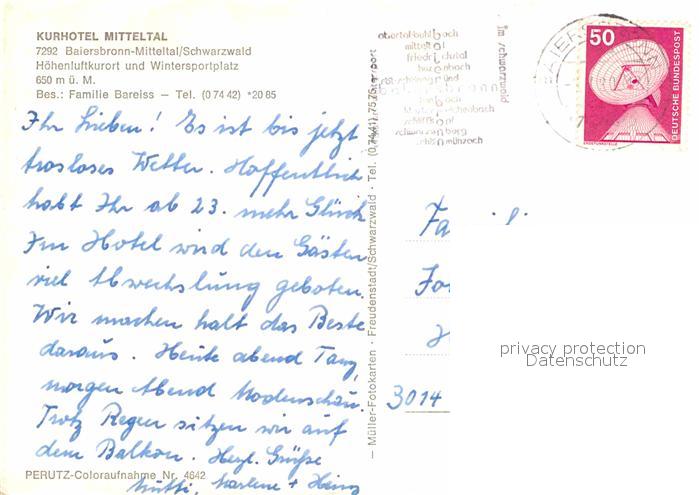 KURHOTEL MITTELTAL
7292 Baiersbronn-Mitteltal/Schwarzwald
Höhenluftkurort und Wintersportplatz
650 m ü. M.
Bes.: Familie Bareiss — Tel. (0 74 42) *20 85
Ihr Lieben! Es ist bis jetzt
trosloses Wetter. Hoffentlich
habt Ihr ab 23. mehr Glück
Im Hotel wird den Gästen
viel Abwechslung geboten.
Wir machen halt das Beste
daraus. Heute abend Tanz,
morgen Abend Modenschau.
Trotz Regen sitzen wir auf
dem Balkon. Herzl. Grüße
Mutti, Marlene + Heinz
PERUTZ-Coloraufnahme Nr. 4642
— Müller-Fotokarten · Freudenstadt/Schwarzwald · Tel. (07441) 7575
obertal-buhlbach
mitteltal
friedrichstal
huzenbach
im schwarzwald
50
DEUTSCHE BUNDESPOST
ERDEFUNKSTELLE
Fa
3014
privacy protection
Datenschutz